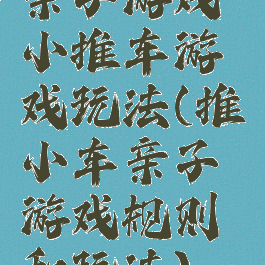 亲子游戏
小推车游
戏玩法(推
小车亲子
游戏规则
和玩法)